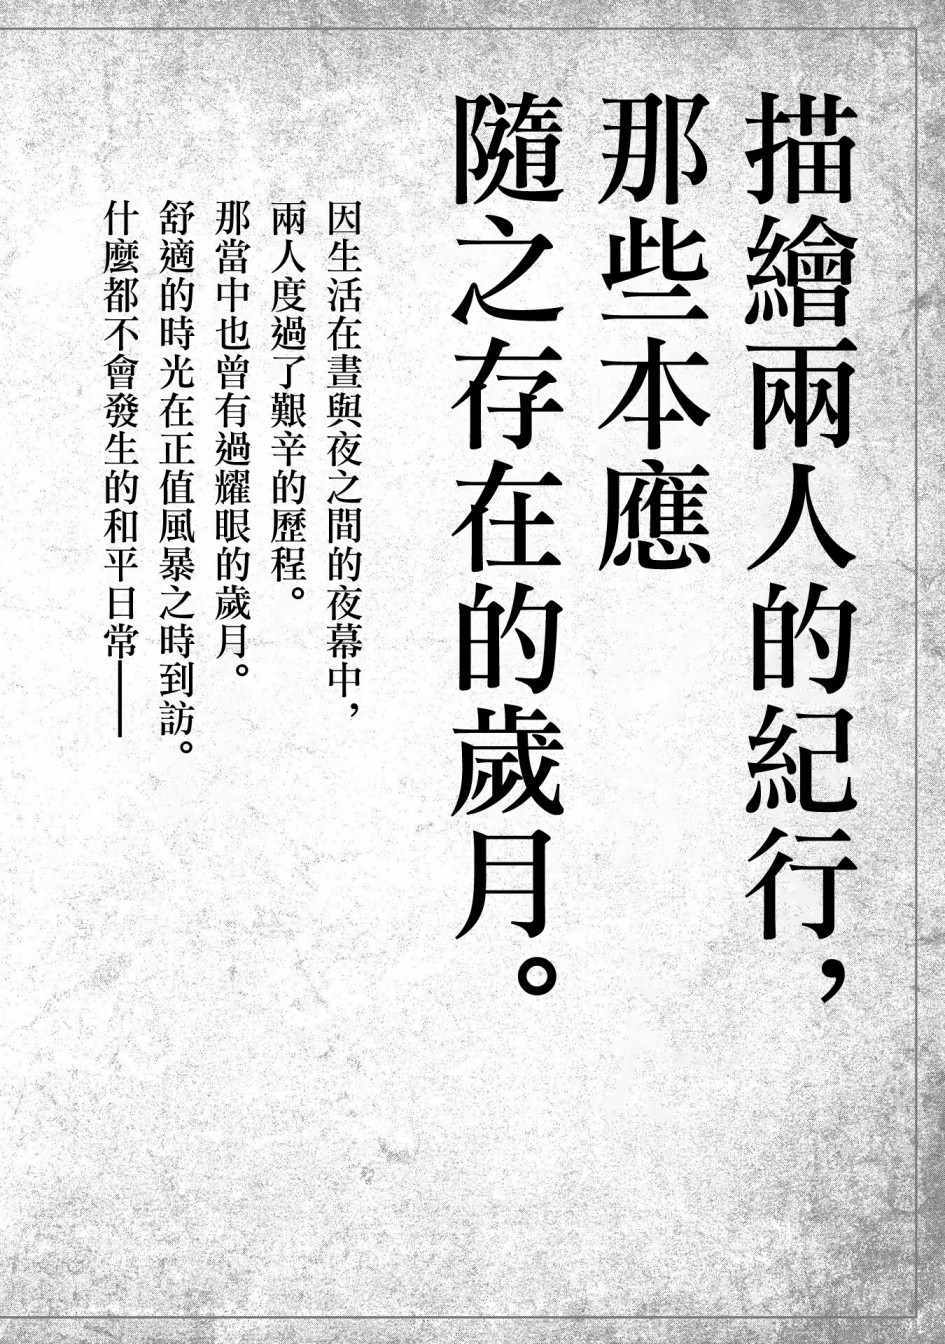 描繪兩人的紀行，
那些本應
隨之存在的歲月。
因生活在晝與夜之間的夜幕中，
兩人度過了艱辛的歷程。
那當中也曾有過耀眼的歲月。
舒適的時光在正值風暴之時到訪。
什麼都不會發生的和平日常——